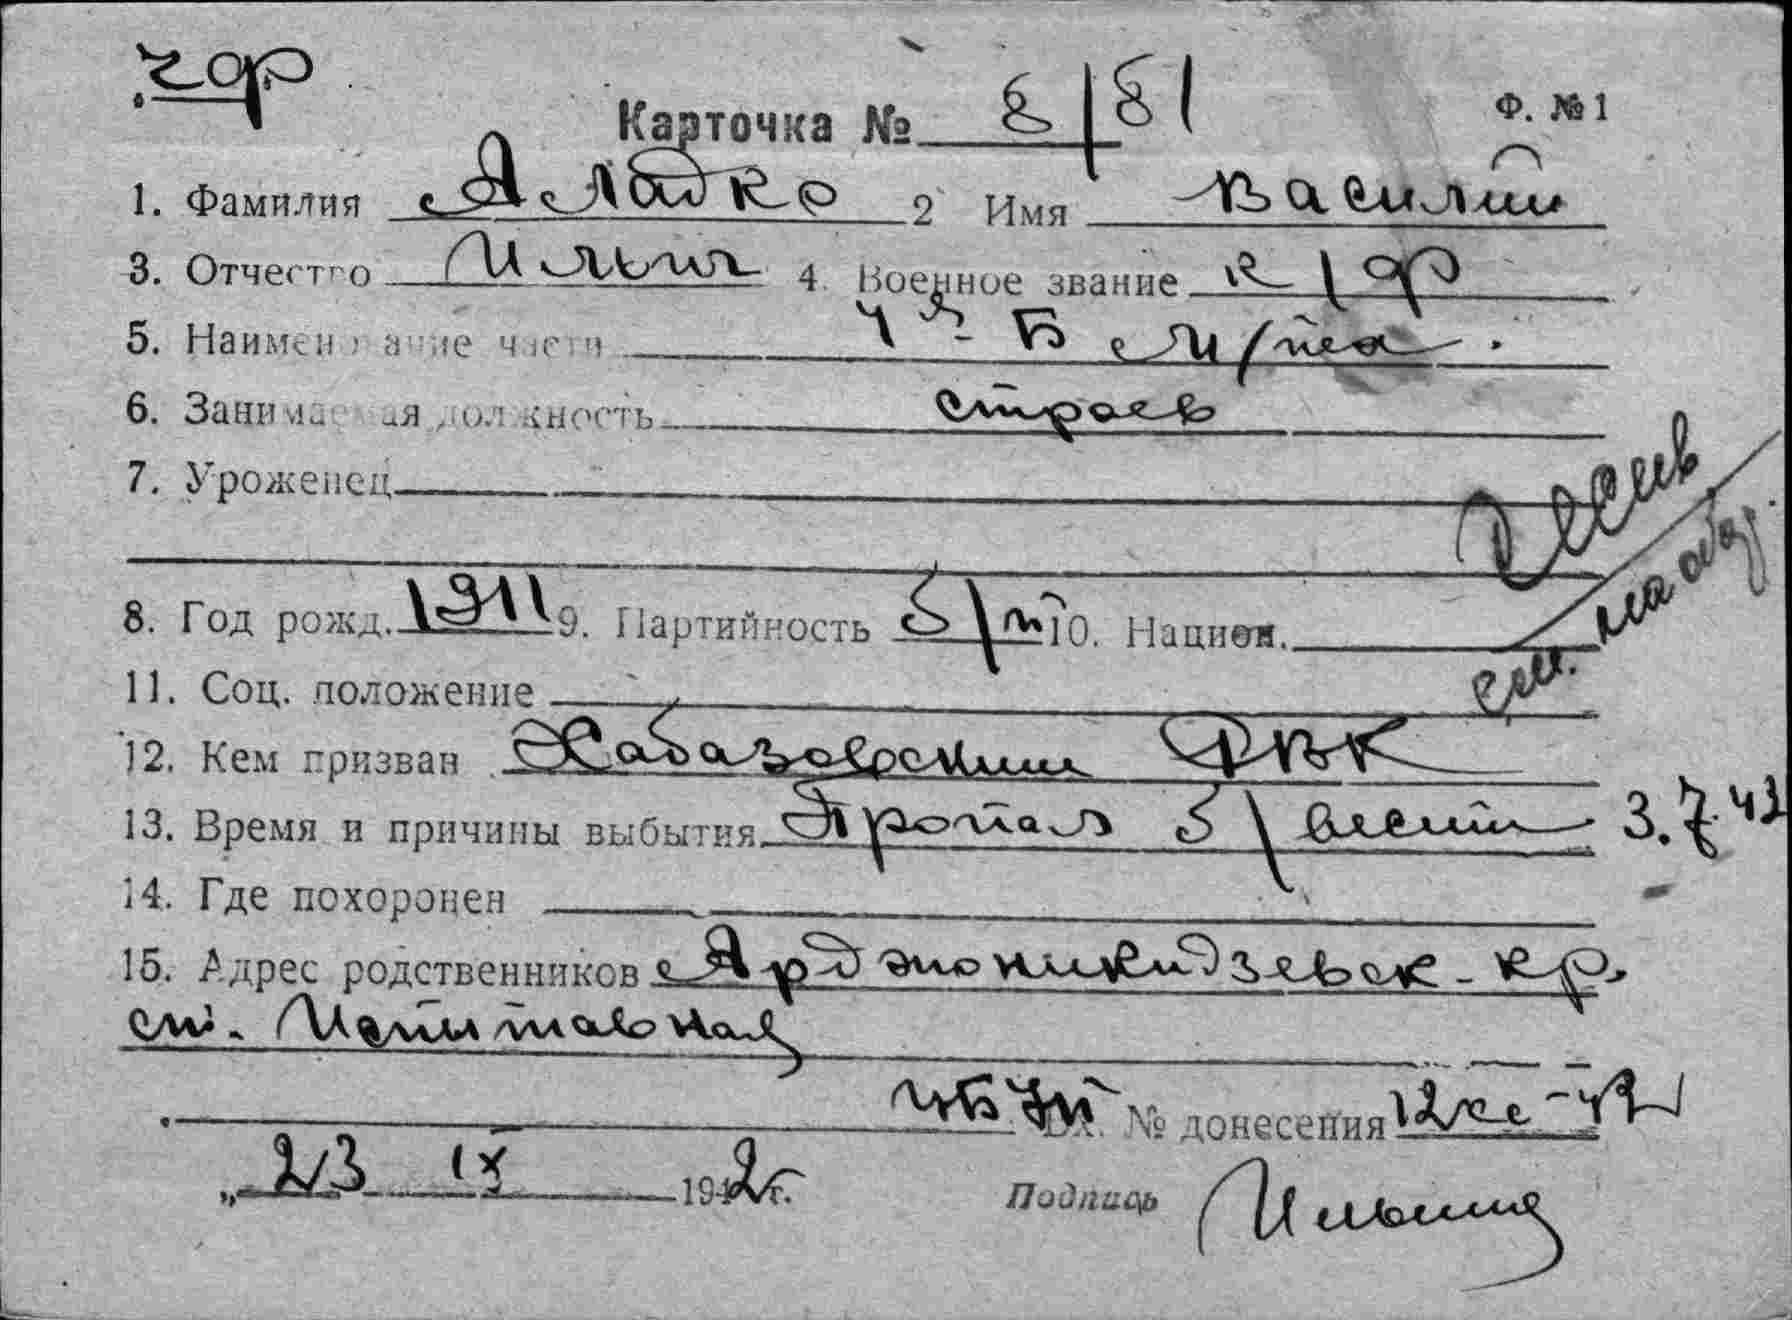 чф
Карточка № 8/81 Ф. №1
1. Фамилия Аладко 2 Имя Василий
3. Отчество Ильич 4. Военное звание к/ф
5. Наименование части 4й - Б м/пех.
6. Занимаемая должность строев
7. Уроженец
8. Год рожд. 1911 9. Партийность б/п 10. Национ.
см. на об.
11. Соц. положение
12. Кем призван Хабазовским РВК
13. Время и причины выбытия Пропал б/вести 3.7.42
14. Где похоронен
15. Адрес родственников Арджоникидзевск - кр.
ст.
Вх. № донесения 12
„23 IX 1942г. Подпись Ильина